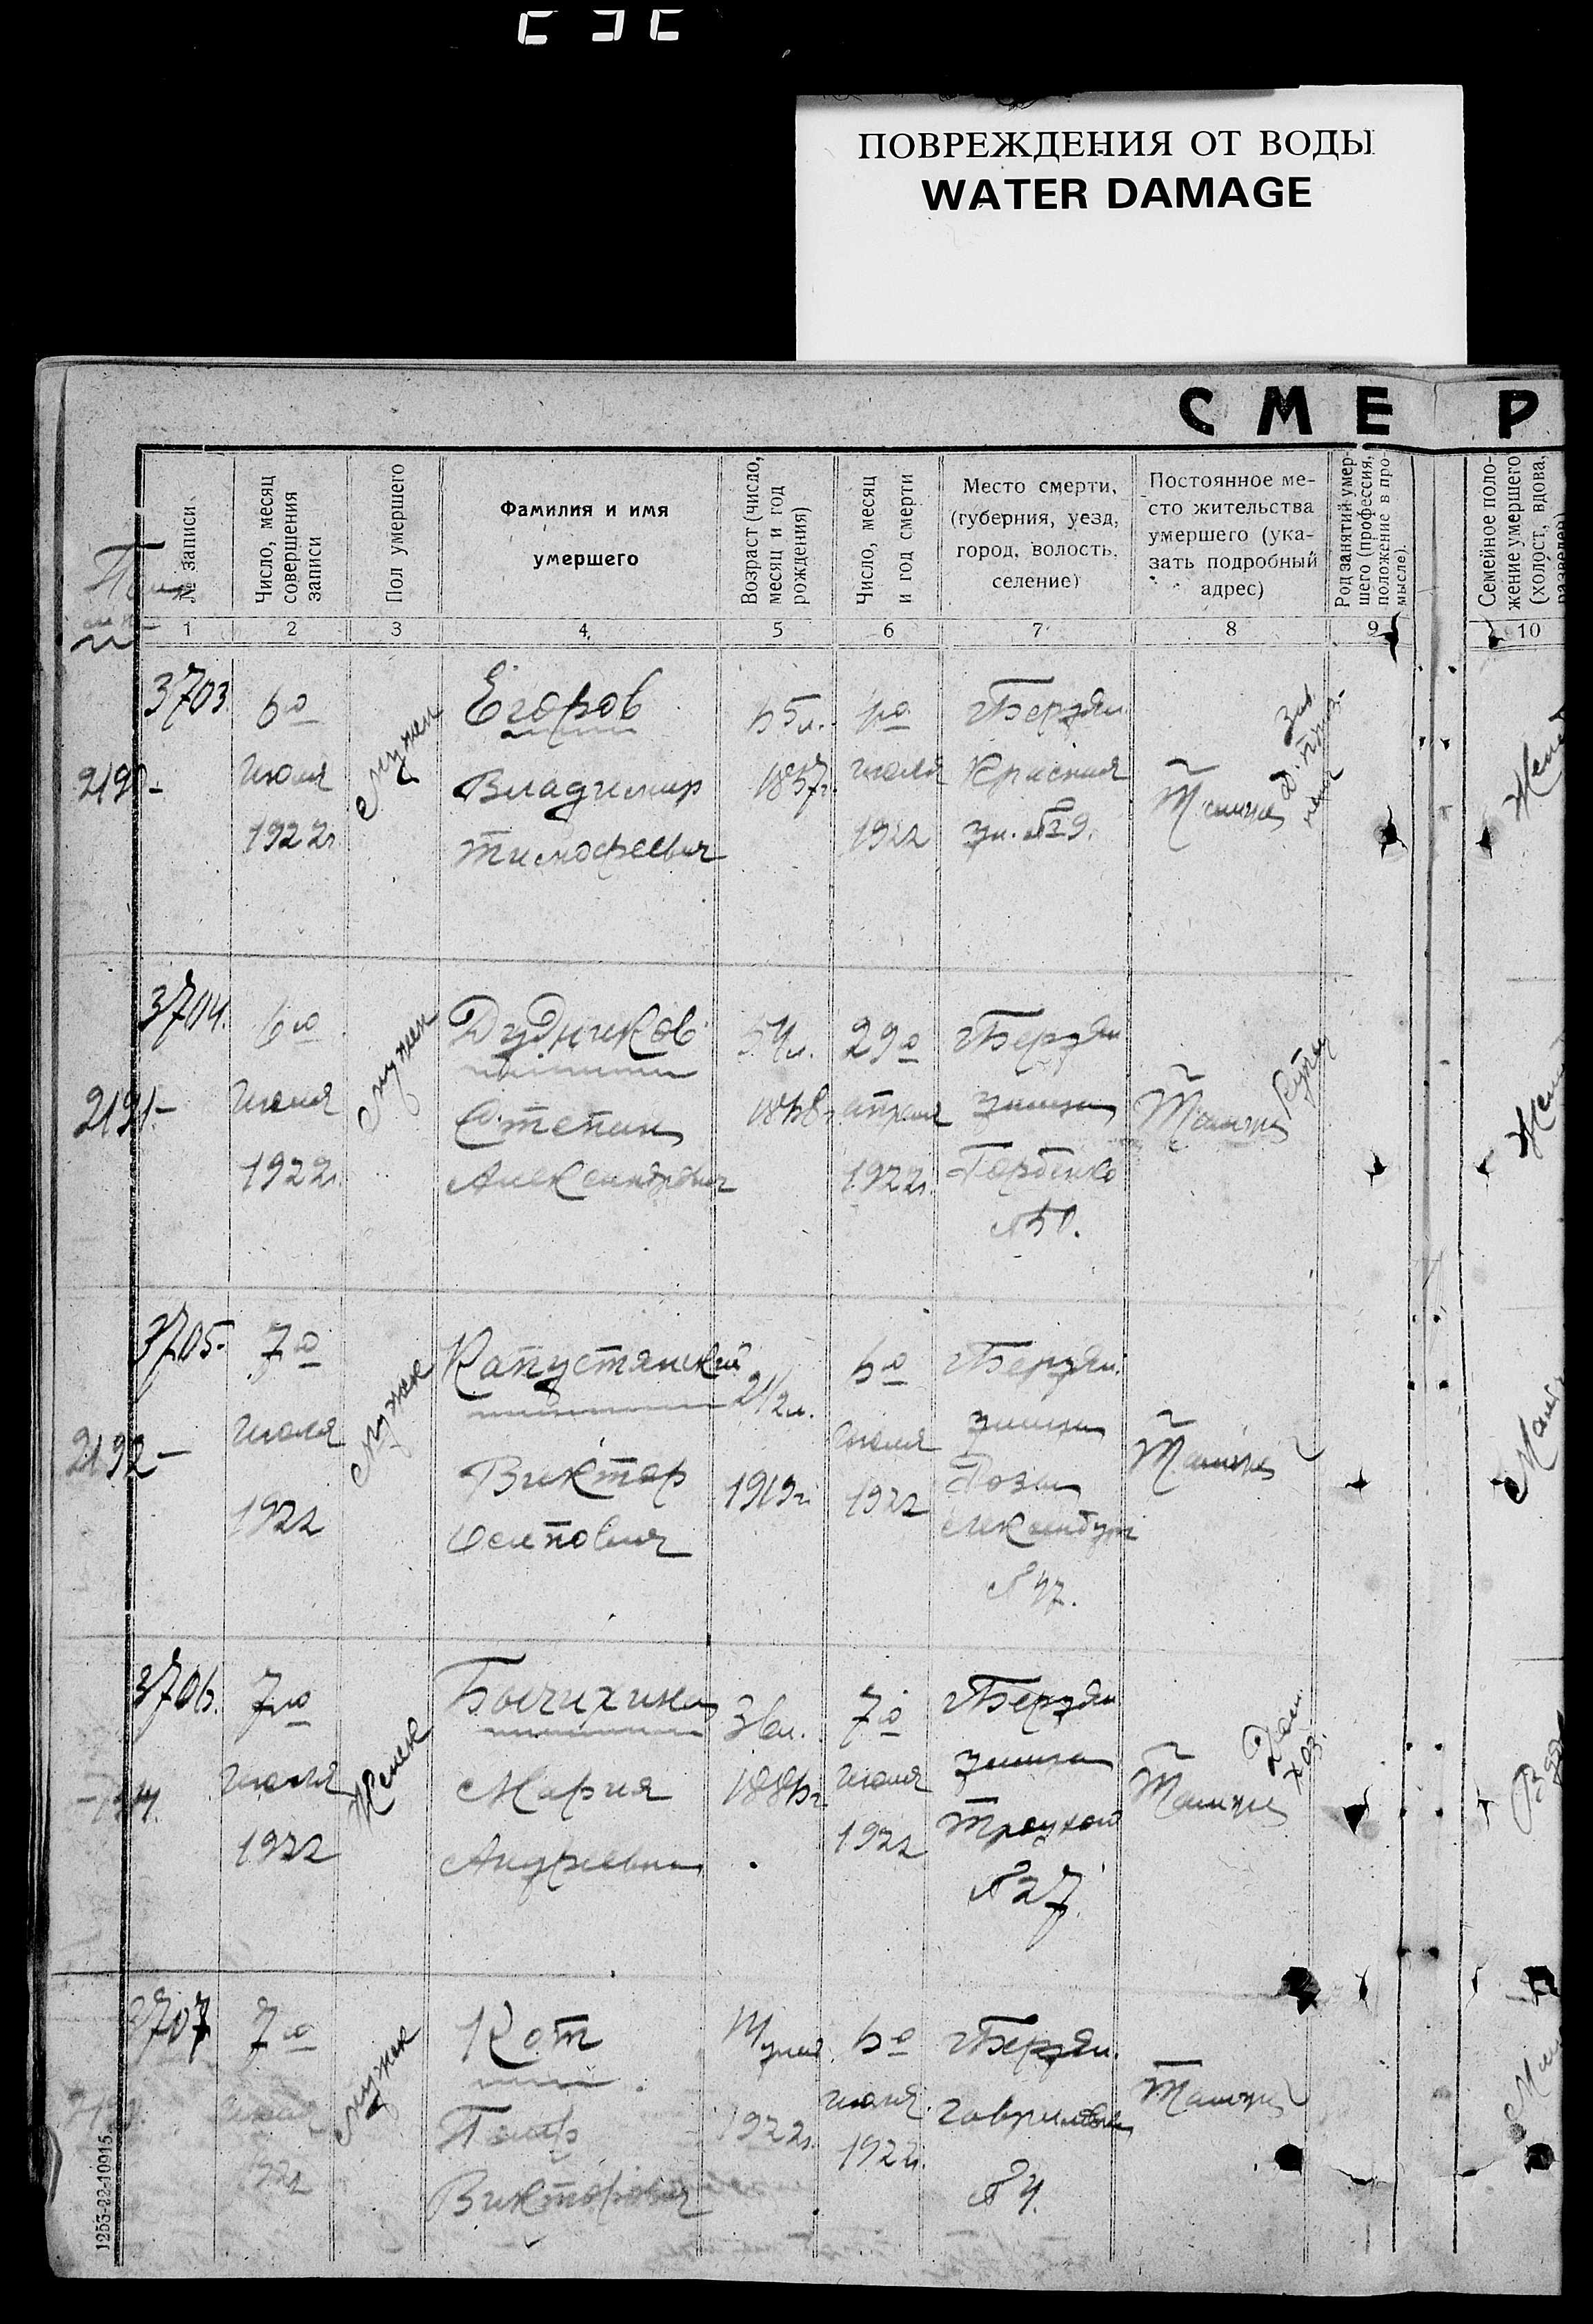 ПОВРЕЖДЕНИЯ ОТ ВОДЫ
WATER DAMAGE
СМЕР
№ записи
Число, месяц
совершения
записи
Пол умершего
Фамилия и имя
умершего
Возраст (число,
месяц и год
рождения)
Число, месяц
и год смерти
Место смерти,
(губерния, уезд,
город, волость,
селение)
Постоянное ме-
сто жительства
умершего (ука-
зать подробный
адрес)
Род занятий умер-
шего (профессия,
положение в про-
мысле).
Семейное поло-
жение умершего
(холост, вдова,
1 2 3 4. 5 6 7 8 9 10
3703.
6го
июля
1922г.
мужск
Егоров
Владимир
Тимофеевич
65л.
1857г.
июля
1922
г Бердян
Красная
ул. №29.
Там же
3704.
6го
июля
1922г.
мужск
Дудников
Степан
Александрович
54л.
1868г
29го
апреля
1922г.
г Бердян
улица
Горбенко
№50.
Там же
2191-
3705.
7го
июля
1922
мужск
Капустянский
Виктор
Осипович
2½л.
1919г.
6го
июля
1922
г Бердян.
улица
Розы
№47.
Там же
2192-
3706.
7го
июля
1922
Женск
Мария
Андреевна
36л.
1886г.
7го
июля
1922
г Бердян
улица
Троцкого
№27.
Там же
Дом.
хоз.
3707
7го
июля
1922
мужск
Кот
Викторович
1922г.
6го
июля
1922г.
г Бердян.
№4.
Там же
1253-22-10915.